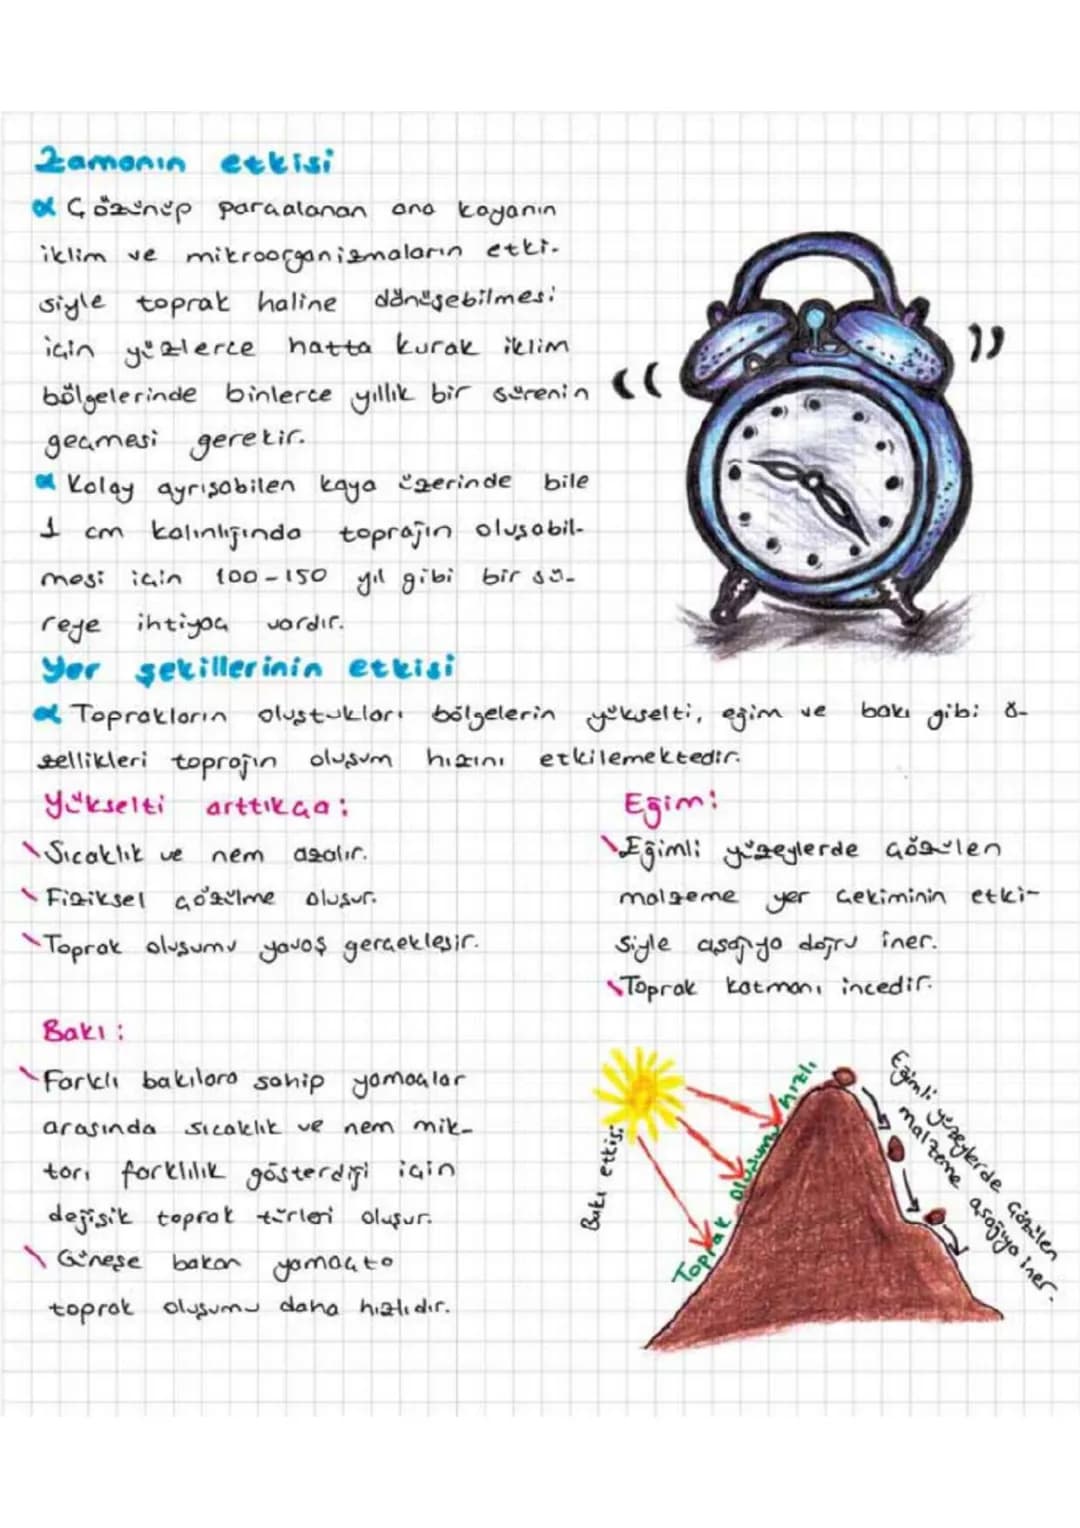 Zamanın etkisi
Çözünüp parçalanan ana kayanın
iklim ve mikroorganizmaların etki-
siyle toprak haline dönüşebilmesi
için yüzlerce hatta kurak iklim
bölgelerinde binlerce yıllık bir sürenin
geçmesi gerekir.
Kolay ayrışabilen kaya üzerinde bile
1 cm kalınlığında toprağın oluşabil-
mesi için 100-150 yıl gibi bir sü-
reye ihtiyaç vardır.
Yer şekillerinin etkisi
Toprakların oluştukları bölgelerin yükselti, eğim ve bakı gibi ö-
zellikleri toprağın oluşum hızını etkilemektedir.
Yükselti arttıkça:
Sıcaklık ve nem azalır.
Fiziksel çözülme oluşur.
Toprak oluşumu yavaş gerçekleşir.
Eğim:
Eğimli yüzeylerde çözülen
malzeme yer çekiminin etki-
siyle aşağıya doğru iner.
Toprak katmanı incedir.
Bakı:
Farklı bakılara sahip yamaçlar
arasında sıcaklık ve nem mik-
tarı farklılık gösterdiği için
değişik toprak türleri oluşur.
Güneşe bakan yamaçta
toprak oluşumu daha hızlıdır.
Bakı etkisi
Toprak oluşumu hızlı
Eğimli yüzeylerde çözülen
malzeme aşağıya iner.